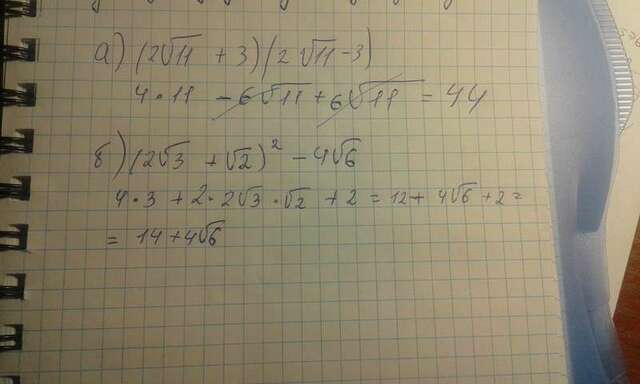 а) (2√11 + 3)(2√11 - 3)
4 · 11 - 6√11 + 6√11 = 44
б) (2√3 + √2)² - 4√6
4 · 3 + 2 · 2√3 · √2 + 2 = 12 + 4√6 + 2 =
= 14 + 4√6